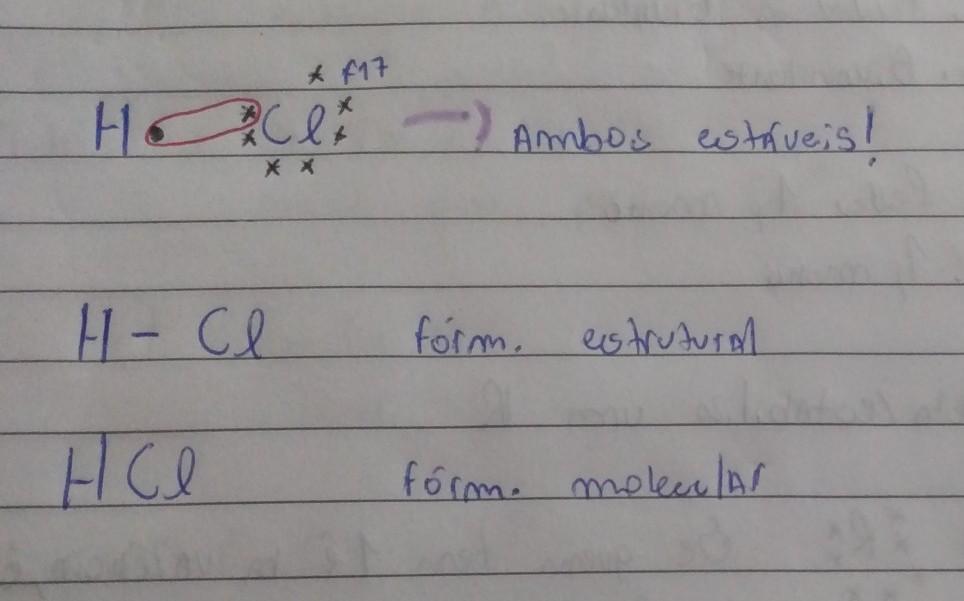 f17
H Cl Ambos estáveis!
H - Cl fórm. estrutural
HCl fórm. molecular